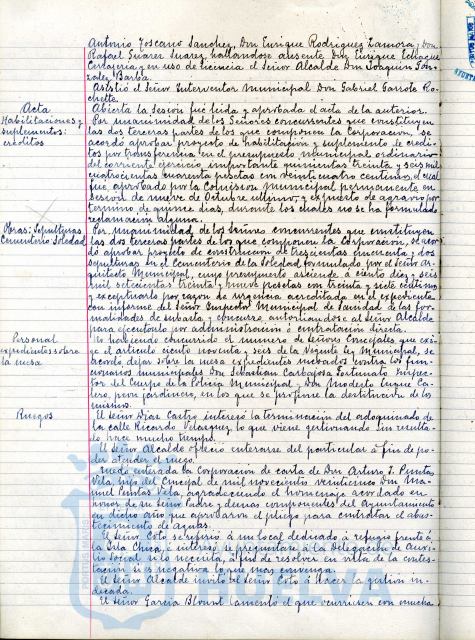 Antonio Toscano Sanchez, Don Enrique Rodriguez Zamora y Don
Rafael Suarez Suarez, hallandose ausente Don Enrique Echague
Cartajena y en uso de licencia el Señor Alcalde Don Joaquin Gon-
zalez Barba.
Asistió el Señor Interventor Municipal Don Gabriel Garrote Ro-
chette.
Acta
Abierta la sesion fué leida y aprobada el acta de la anterior.
Habilitaciones y
suplementos:
créditos
Por unanimidad de los Señores concurrentes que constituyen
las dos terceras partes de los que componen la Corporacion, se
acordó aprobar proyecto de habilitacion y suplemento de credi-
tos por transferencia en el presupuesto municipal ordinario
del corriente ejercicio, importante quinientas treinta y seis mil
cuatrocientas cuarenta pesetas con veinticuatro centimos, el cual
fué aprobado por la Comision municipal permanente en
sesion de nueve de Octubre ultimo, y expuesto de agravio por
termino de quince dias, durante los cuales no se ha formulado
reclamacion alguna.
Obras: Sepulturas
Cementerio Soledad
Por unanimidad de los señores concurrentes que constituyen
las dos terceras partes de los que componen la Corporacion, se acor-
dó aprobar proyecto de construccion de trescientas cincuenta y dos
sepulturas en el Cementerio de la Soledad, formulado por el Señor Ar-
quitecto Municipal, cuyo presupuesto asciende á ciento diez y seis
mil setecientas treinta y nueve pesetas con treinta y siete centimos
y exceptuarle por razon de urgencia acreditada en el expediente
con informe del Señor Inspector Municipal de Sanidad de las for-
malidades de subasta y concurso, autorizandose al Señor Alcalde
para ejecutarlo por administracion ó contratacion directa.
Personal
expedientes sobre
la mesa
No habiendo concurrido el numero de Señores Concejales que exi-
ge el articulo ciento noventa y seis de la Vigente ley Municipal, se
acordo dejar sobre la mesa expedientes incoados contra los fun-
cionarios municipales Don Sebastian Carbajosa Fortunato Inspec-
tor del Cuerpo de la Policia Municipal y Don Modesto Luque Ca-
lero, peon jardinero, en los que se propone la destitucion de los
mismos.
Ruegos
El Señor Diaz Castro interesó la terminacion del adoquinado de
la calle Ricardo Velazquez, lo que viene gestionando sin resulta-
do hace mucho tiempo.
El Señor Alcalde ofreció enterarse del particular á fin de po-
der atender el ruego.
Quedó enterada la Corporacion de carta de Don Arturo J. Puntas
Vela, hijo del Concejal de mil novecientos veinticinco Don Ma-
nuel Puntas Vela, agradeciendo el homenaje acordado en
honor de su Señor Padre y demas componentes del Ayuntamiento
en dicho año que aprobaron el pliego para contratar el abas-
tecimiento de Aguas.
El Señor Coto se refirió á un local dedicado á refugio frente á
la Isla Chica, é interesó se preguntase á la Delegacion de Auxi-
lio Social si lo necesita, á fin de resolver en vista de la contes-
tacion si es negativa lo que mas convenga.
El Señor Alcalde invitó al Señor Coto á hacer la gestion in-
dicada.
El Señor Garcia Blount lamentó el que ocurriesen con mucha
HUELVA